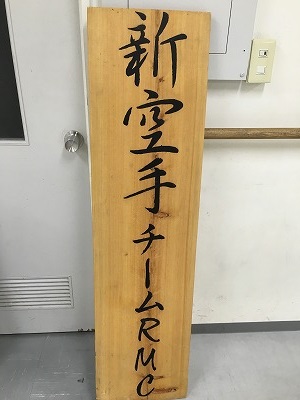 新空手チームRMC